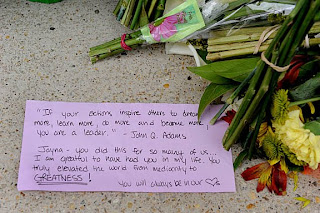 "If your actions inspire others to dream
more, learn more, do more and become more,
you are a leader." - John Q. Adams
Jayna - you did this for so many of us.
I am greatful to have had you in my life. You
truly elevated the world from mediocrity to
GREATNESS!
You will always be in our